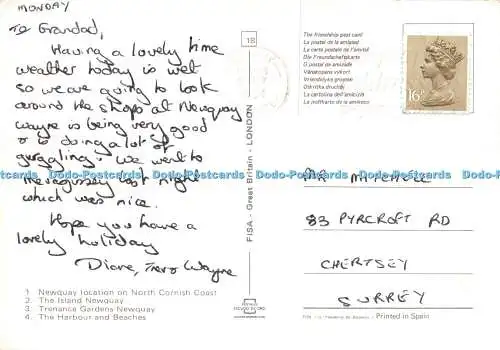 MONDAY
To Grandad,
Having a lovely time
weather today is wet
so we are going to look
around the shops at Newquay
Wayne is being very good
& is doing a lot of
gurgling. We went to
Mevagissey last night
which was nice.
Hope you have a
lovely holiday
Diane, Trev & Wayne
1 Newquay location on North Cornish Coast
2. The Island Newquay
3. Trenance Gardens Newquay
4. The Harbour and Beaches
18
FISA - Great Britain - LONDON
POSTALES
ESCUDO DE ORO
The friendship post card
La postal de la amistad
La carte postale de l'amitié
Die Freundschaftskarte
O postal de amizade
Vänskapens vykort
Vriendelijke groeten
La cartolina dell'amicizia
16
MR MITCHELL
83 PYRCROFT RD
CHERTSEY
SURREY
Printed in Spain
Dodo-Postcards Dodo-Postcards Dodo-Postcards Dodo-Postcards